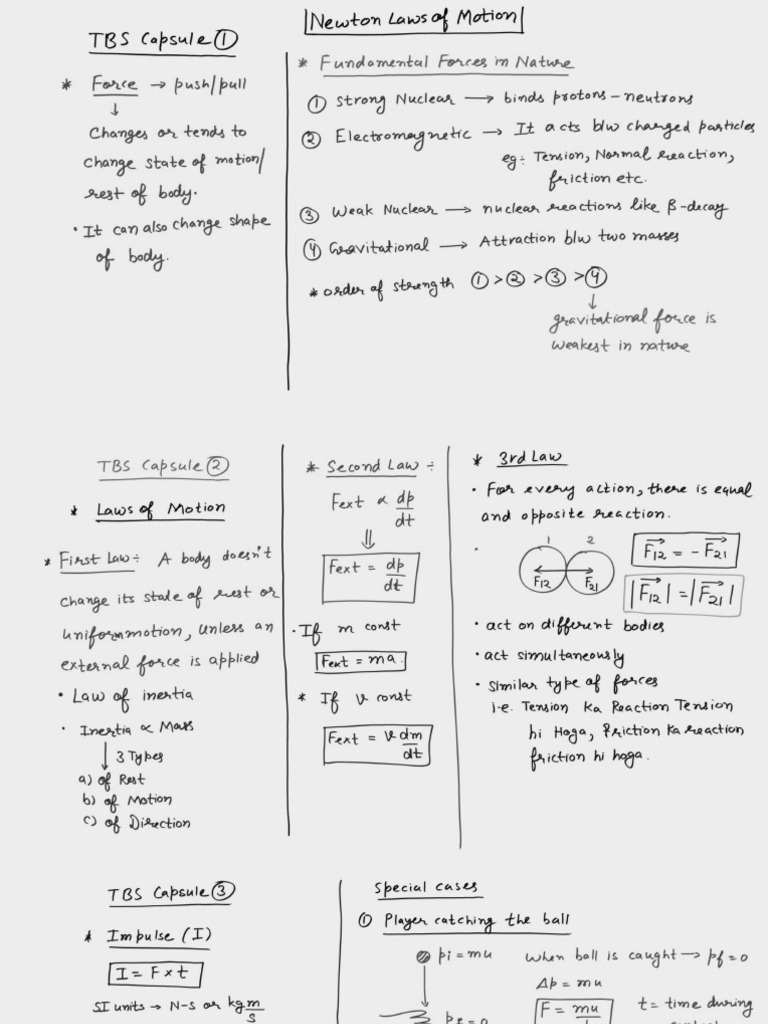 Newton Laws of Motion
TBS Capsule ①
* Force → push/pull
↓
Changes or tends to
change state of motion/
rest of body.
• It can also change shape
of body.
* Fundamental Forces in Nature
① Strong Nuclear → binds protons - neutrons
② Electromagnetic → It acts b/w charged particles
eg:- Tension, Normal reaction,
friction etc.
③ Weak Nuclear → nuclear reactions like β-decay
④ Gravitational → Attraction b/w two masses
* order of strength ① > ② > ③ > ④
↓
gravitational force is
weakest in nature
TBS Capsule ②
* Laws of Motion
* First Law ÷ A body doesn't
change its state of rest or
uniform motion, unless an
external force is applied
• Law of inertia
• Inertia ∝ Mass
↓ 3 Types
a) of Rest
b) of Motion
c) of Direction
* Second Law ÷
Fext ∝ dp/dt
⇓
Fext = dp/dt
• If m const
Fext = ma.
* If v const
Fext = v dm/dt
* 3rd Law
• For every action, there is equal
and opposite reaction.
• 1 2
F12 F21
F12 = - F21
|F12| = |F21|
• act on different bodies
• act simultaneously
• similar type of forces
i.e. Tension ka Reaction Tension
hi Hoga, Friction ka reaction
friction hi hoga.
TBS Capsule ③
* Impulse (I)
I = F × t
SI units → N-S or kg m/s
Special cases
① Player catching the ball
pi = mu
when ball is caught → pf = 0
Δp = mu
F = mu
t = time during